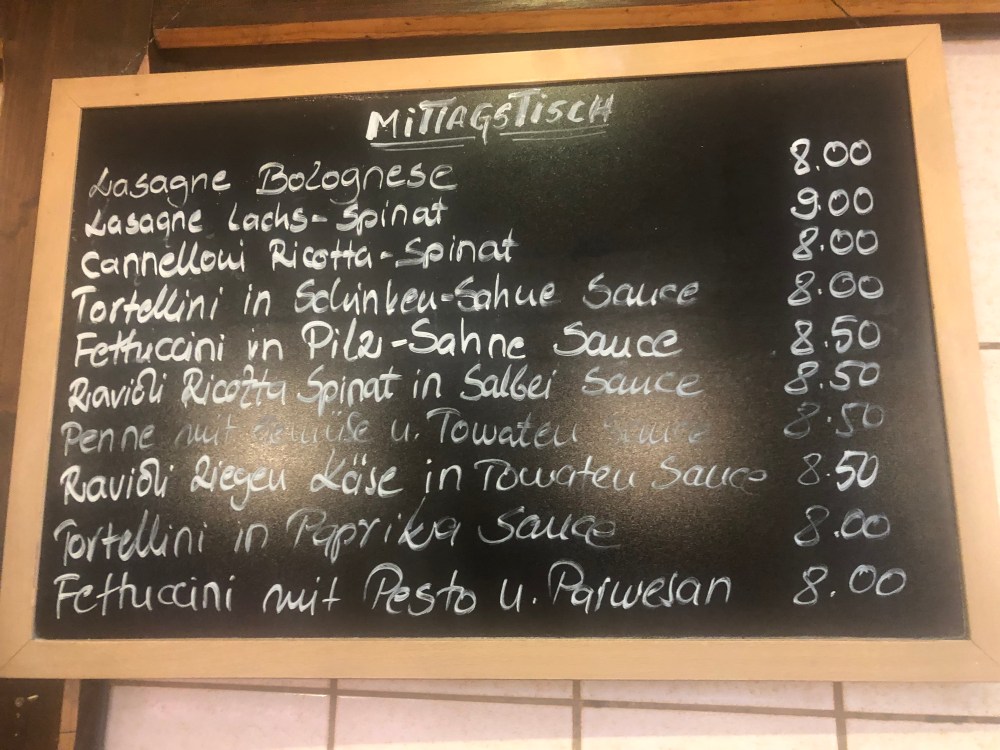 MITTAGSTISCH
Lasagne Bolognese 8.00
Lasagne Lachs-Spinat 9.00
Cannelloni Ricotta-Spinat 8.00
Tortellini in Schinken-Sahne Sauce 8.00
Fettuccini in Pilz-Sahne Sauce 8.50
Ravioli Ricotta Spinat in Salbei Sauce 8.50
Penne mit Gemüse u. Tomaten Sauce 8.50
Ravioli Ziegen Käse in Tomaten Sauce 8.50
Tortellini in Paprika Sauce 8.00
Fettuccini mit Pesto u. Parmesan 8.00